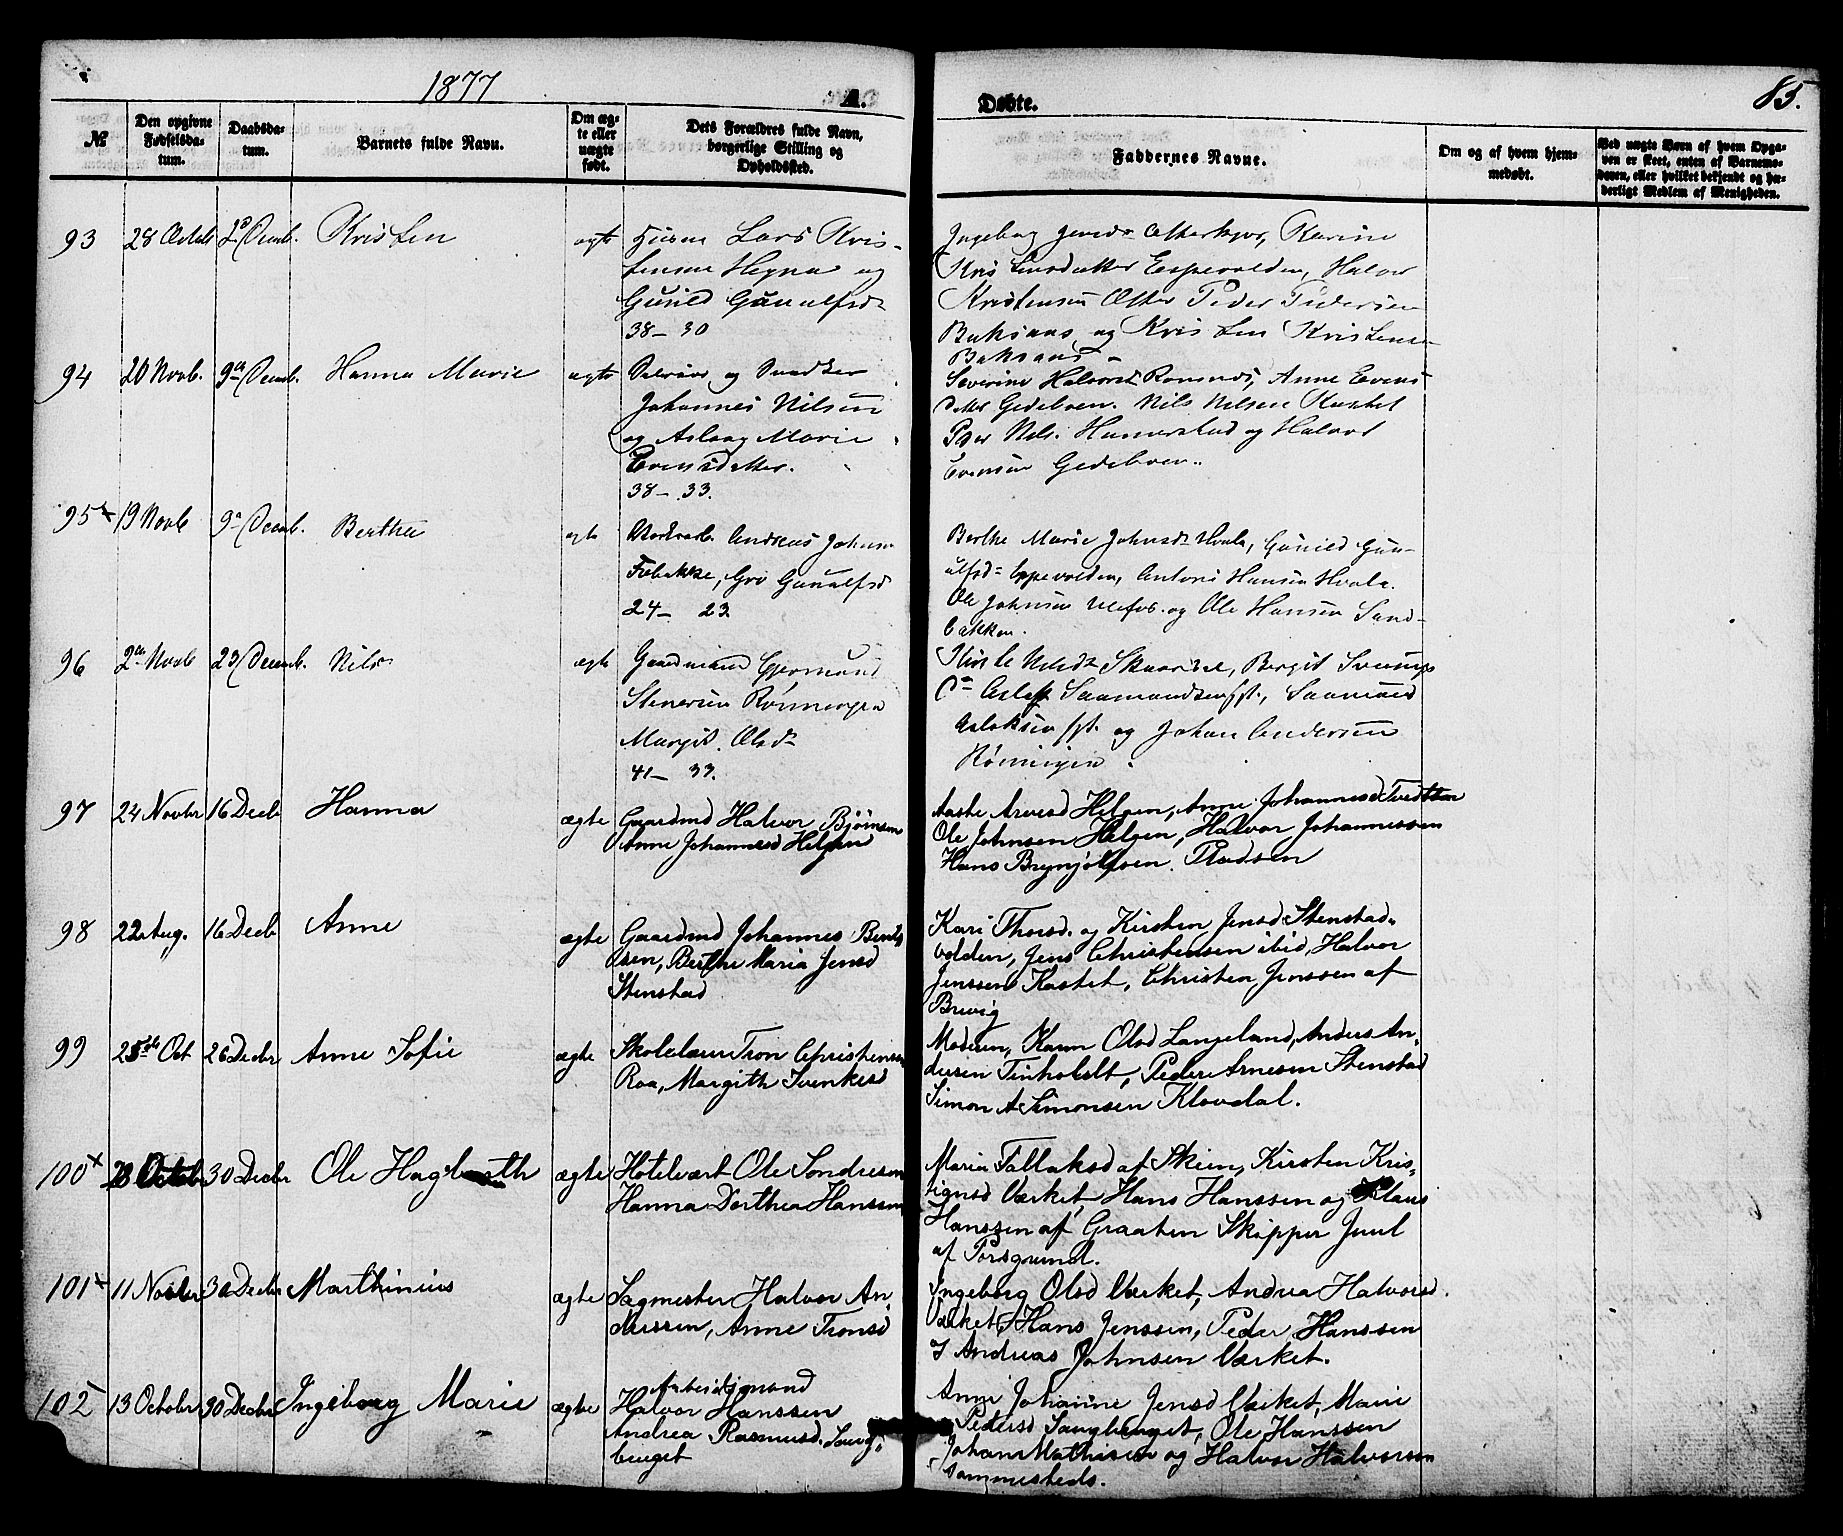 1877
A.
Døbte.
85.
№
Den opgivne Fødselsdatum.
Daabsdatum.
Barnets fulde Navn.
Om ægte eller uægte født.
Dets Forældres fulde Navn, borgerlige Stilling og Opholdssted.
Faddernes Navne.
Om og af hvem hjemmedøbt.
Ved uægte Børn af hvem Opgaven er skeet, enten af Barnemoderen, eller hvilket bekjendt og hæderligt Medlem af Menigheden.
93 28 Octob Decmb. Kristen ægte Husm Lars Kris-
tensen Hegna og
Gunild Gunulfsd
38 - 30
Ingeborg Otterkjær, Karine
Kristensdatter Espevolden, Halvor
Kristensen Otter Peder Pedersen
Baksaas og Kristen Kristens
Baksaas
94 20 Novb. 9de Decmb. Hanna Marie ægte og
Johannes Nilsen
og Aslaug Marie
Evensdatter.
38 - 33.
Severine Halvorsd Romsnæs, Anne Evens
datter Gedeboen. Nils Nilsen Kastet
Peder Nils. Hamerstad og Halvor
Evensen Gedeboen.
95 x 19 Novb 9de Decmb. Berthe ægte Andreas Johnsen
Gro Gunulfsd
24 - 23
Berthe Marie Johnsd Hvala, Gunild Gun-
ulfsd Espevolden, Antons Hansen Hvala.
Ole Johnsen Ulefos. og Ole Hansen Sand-
bakken.
96 2den Novb 23 Decemb. Nils ægte Gaardmand Gjermund
Stenersen Rønningen
Margit Olsd
41 - 33.
Nilsd Bergit
Aslak Saamundsen Saamund
Aslaksen og Johan Andersen
Rønningen
97 24 Novbr 16 Decb Hanna ægte Gaardmd Halvor Bjørnsen
Anne Johannesd Helgen
Aaste Arvesd Helgen, Anne Johannesd
Ole Johnsen Helgen, Halvor Johannessen
Hans Brynjolfsen.
98 22 Aug. 16 Decb Anne ægte Gaardmd Johannes Bent-
sen, Berthe Maria Jensd
Stenstad
Kari Thorsd. og Kirsten Jensd Stenstad-
volden, Jens Christensen ibid, Halvor
Jenssen Kastet, Christen Jenssen af
Brevig
99 25de Oct 26 Decbr Anne Sofie ægte Skolelærer Tron Christensen
Roa, Margith Svenkesd
Moderen, Karen Olsd Langeland, Anders An-
dersen Tinholdt, Peder Arnesen Stenstad
Simon A Simonsen Klovdal.
100 x 28 Octob 30 Decbr Ole Hagbarth ægte Hotelvært Ole Sondresen
Hanna Dorthea Hanssen
Maria Tallaksd af Skien, Kirsten Kris-
tiansd Værket, Hans Hanssen og Klaus
Hanssen af Graaten Skipper Juul
af Porsgrund.
101 x 11 Novbr 30 Decbr Marthinius ægte Sagmester Halvor An-
dersen, Anne Tronsd
Ingeborg Olsd Værket, Andrea Halvorsd.
Værket, Hans Jenssen, Peder Hanssen
Andreas Johnsen Værket.
102 13 Octobr 30 Decbr Ingeborg Marie ægte Arbeidsmand
Halvor Hanssen
Andrea Rasmusd. Saug-
benget
Anne Johanne Jensd Værket, Marie
Pedersd Saugbenget, Ole Hanssen
Johan Mathisen og Halvor Halvorsen
sammesteds.